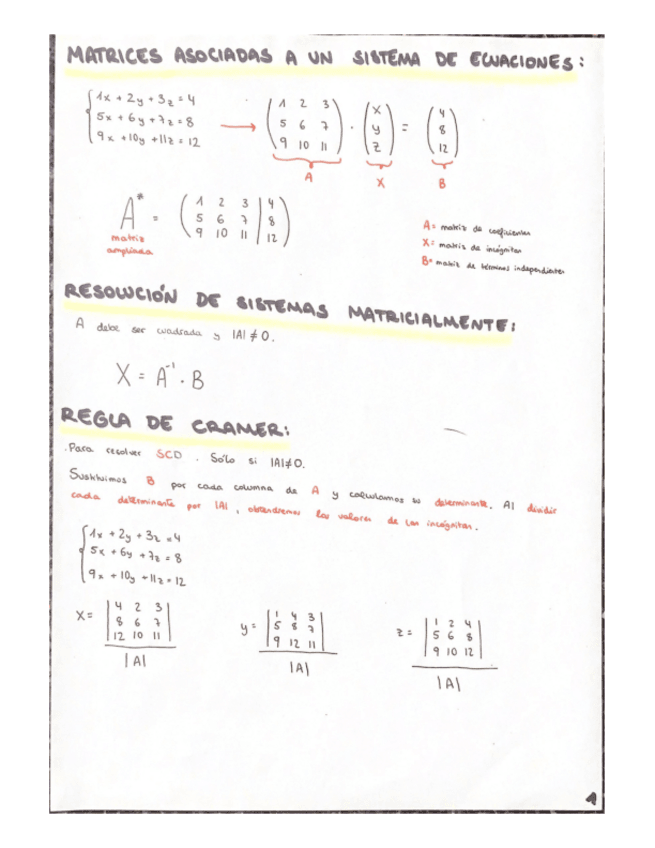 MATRICES ASOCIADAS A UN SISTEMA DE ECUACIONES:
{ 1x + 2y + 3z = 4
5x + 6y + 7z = 8
9x + 10y + 11z = 12
→ ( 1 2 3
5 6 7
9 10 11 ) · ( x
y
z ) = ( 4
8
12 )
A X B
A* = ( 1 2 3 | 4
5 6 7 | 8
9 10 11 | 12 )
matriz
ampliada
A= matriz de coeficientes
X= matriz de incógnitas
B= matriz de términos independientes
RESOLUCIÓN DE SISTEMAS MATRICIALMENTE:
A debe ser cuadrada y |A| ≠ 0.
X = A⁻¹ · B
REGLA DE CRAMER:
. Para resolver SCD . Sólo si |A|≠0.
Sustituimos B por cada columna de A y calculamos su determinante. Al dividir
cada determinante por |A| , obtendremos los valores de las incógnitas.
{ 1x + 2y + 3z = 4
5x + 6y + 7z = 8
9x + 10y + 11z = 12
x = | 4 2 3
8 6 7
12 10 11 |
|A|
y = | 1 4 3
5 8 7
9 12 11 |
|A|
z = | 1 2 4
5 6 8
9 10 12 |
|A|
1